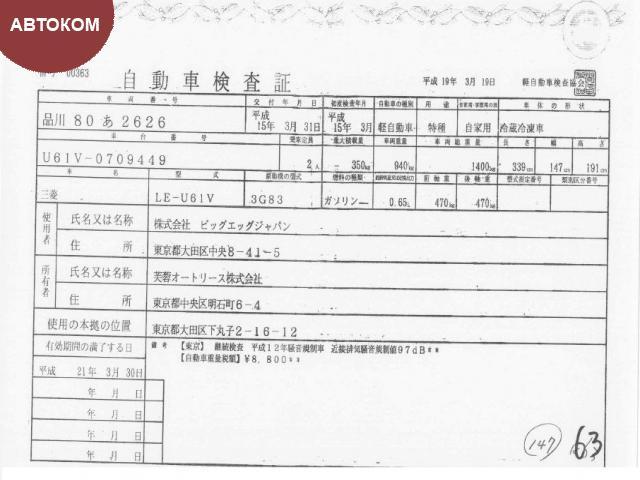 АВТОКОМ
00363
自動車検査証
平成 19年 3月 19日 軽自動車検査協会
車両番号 交付年月日 初度検査年月 自動車の種別 用途 自家用・事業用の別 車体の形状
品川 80 あ 2626 平成 15年 3月 31日 平成 15年 3月 軽自動車 特種 自家用 冷蔵冷凍車
車台番号 乗車定員 最大積載量 車両重量 車両総重量 長さ 幅 高さ
U61V-0709449 2人 350kg 940kg 1400kg 339cm 147cm 191cm
車名 型式 原動機の型式 燃料の種類 前軸重 後軸重 型式指定番号 類別区分番号
三菱 LE-U61V 3G83 ガソリン 0.65L 470kg 470kg
使用者 氏名又は名称 株式会社 ビッグエッグジャパン
住所 東京都大田区中央8-41-5
所有者 氏名又は名称 芙蓉オートリース株式会社
住所 東京都中央区明石町6-4
使用の本拠の位置 東京都大田区下丸子2-16-12
有効期間の満了する日 備考 【東京】 継続検査 平成12年騒音規制車 近接排気騒音規制値97dB**
【自動車重量税額】¥8,800**
平成 21年 3月 30日
年 月 日
年 月 日
年 月 日
年 月 日
147 63